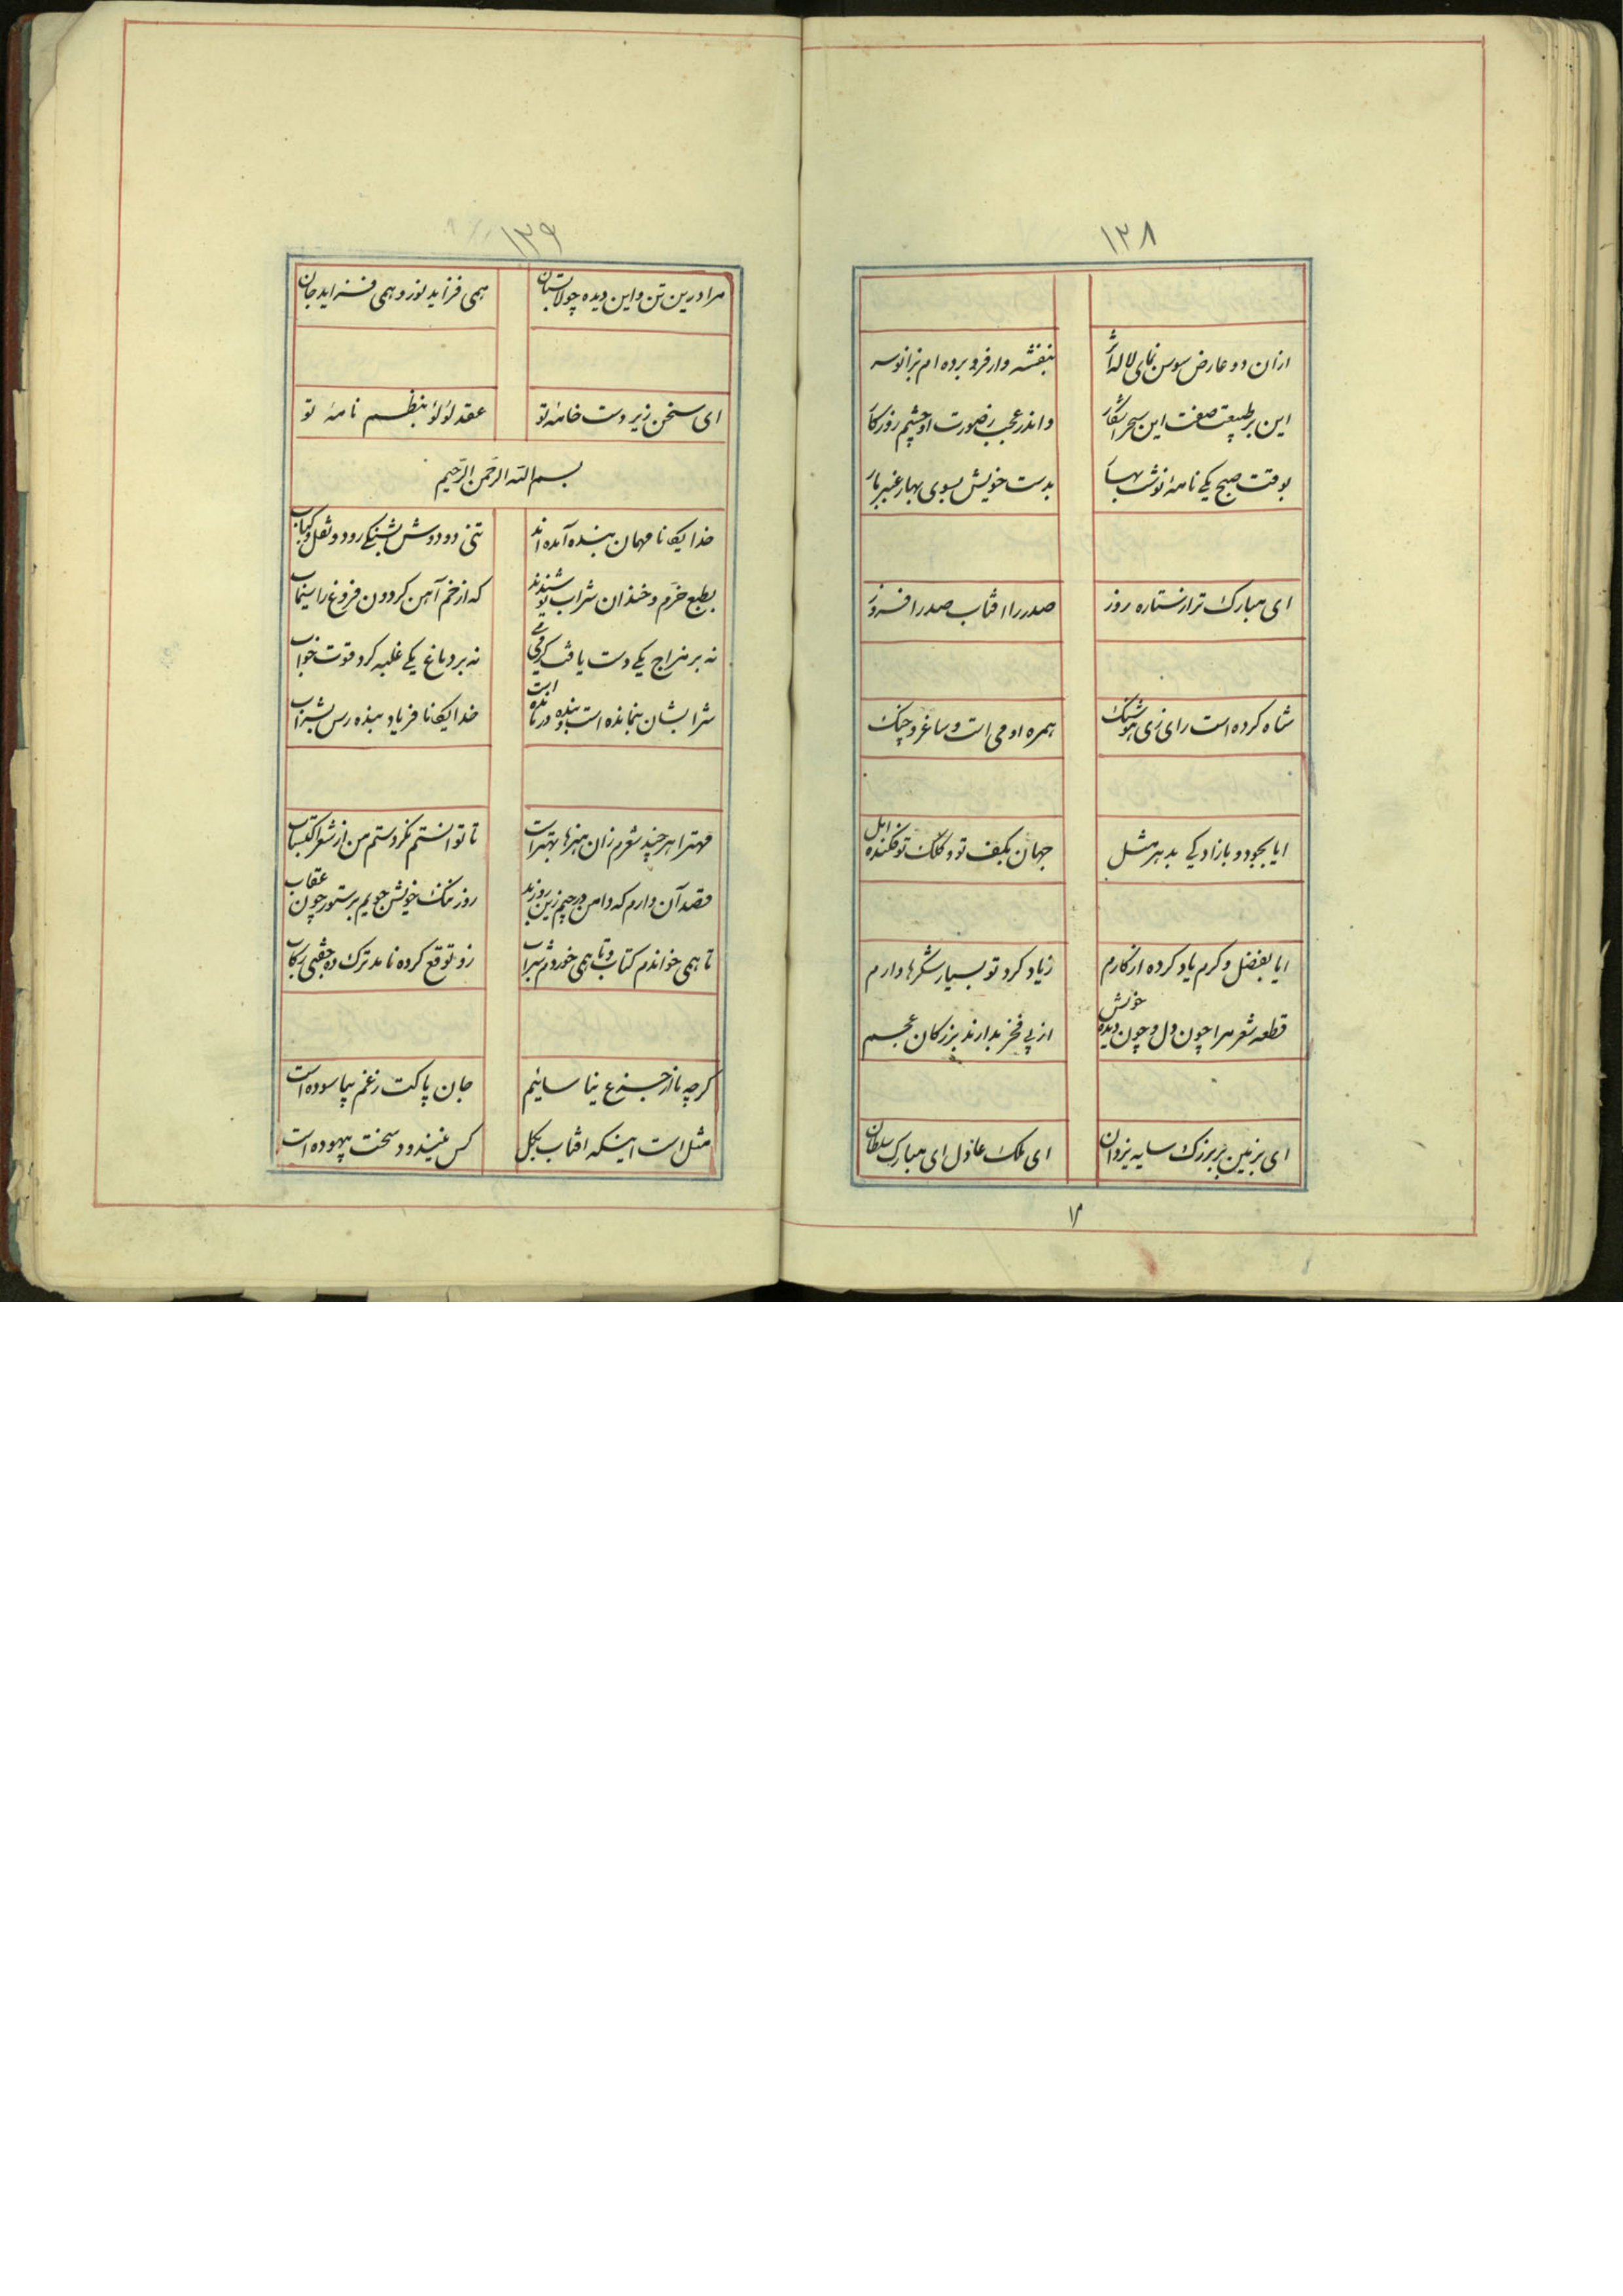 ۱۳۸
ازان دو عارض سوسن نمای لاله اثر بنفشه وار فرو برده ام بزانو سر
این بر طبیعت صفت این سحر آشکار و اندر عجب ز صورت او چشم روزگار
بوقت صبح یکی نامهٔ نوشت بهار بدست خویش بسوی بهار عنبر بار
ای مبارک تر از ستاره روز صدر را افتاب صدر افروز
شاه کرده است رای زی هوشنگ همره او می است و ساغر و چنک
ایا بجود و بازادیکی بدهر مثل جهان بکف تو و کلک تو فکنده امل
ایا بفضل و کرم یاد کرده از کارم ز یاد کرد تو بسیار شکرها دارم
قطعه شعر مرا چون دل و چون دیده خویش از پی فخر بدارند بزرکان عجم
ای بزمین بر بزرک سایه یزدان ای ملک عادل ای مبارک سلطان
۱۳۹
مرا درین تن و این دیده چو لاستان همی فزاید نور و همی فزاید جان
ای سخن زیر دست خامهٔ تو عقد لؤلؤ بنظم نامهٔ تو
بسم الله الرحمن الرحیم
خدایکانا مهمان بنده آمده اند تنی دو دوش بشبکی رود و نقل و کباب
بطبع خرم و خندان شراب نوشیدند که از خم آهن کردون فروغ راسیماب
نه بر مزاج یکی دست یافت کرمی می نه بر دماغ یکی غلبه کرد قوت خواب
شرابشان بنمانده است و بنده درمانده است خدایکانا فریاد بنده رس بشراب
مهترا هر چند شعرم زان هنرها بهتر است تا توانستم نکردستم من از شعر اکتساب
قصد آن دارم که دامن درچیم زین روز بد روز نیک خویش جویم بر ستور چون عقاب
تا همی خواندم کتاب و تا همی خوردم شراب زو توقع کرده نامد ترک ده جفتی رکاب
کرچه ما از جزع نیاسائیم جان پاکت ز غم بیاسوده است
مثل است اینکه افتاب بکل کس نینداود سخت بیهوده است